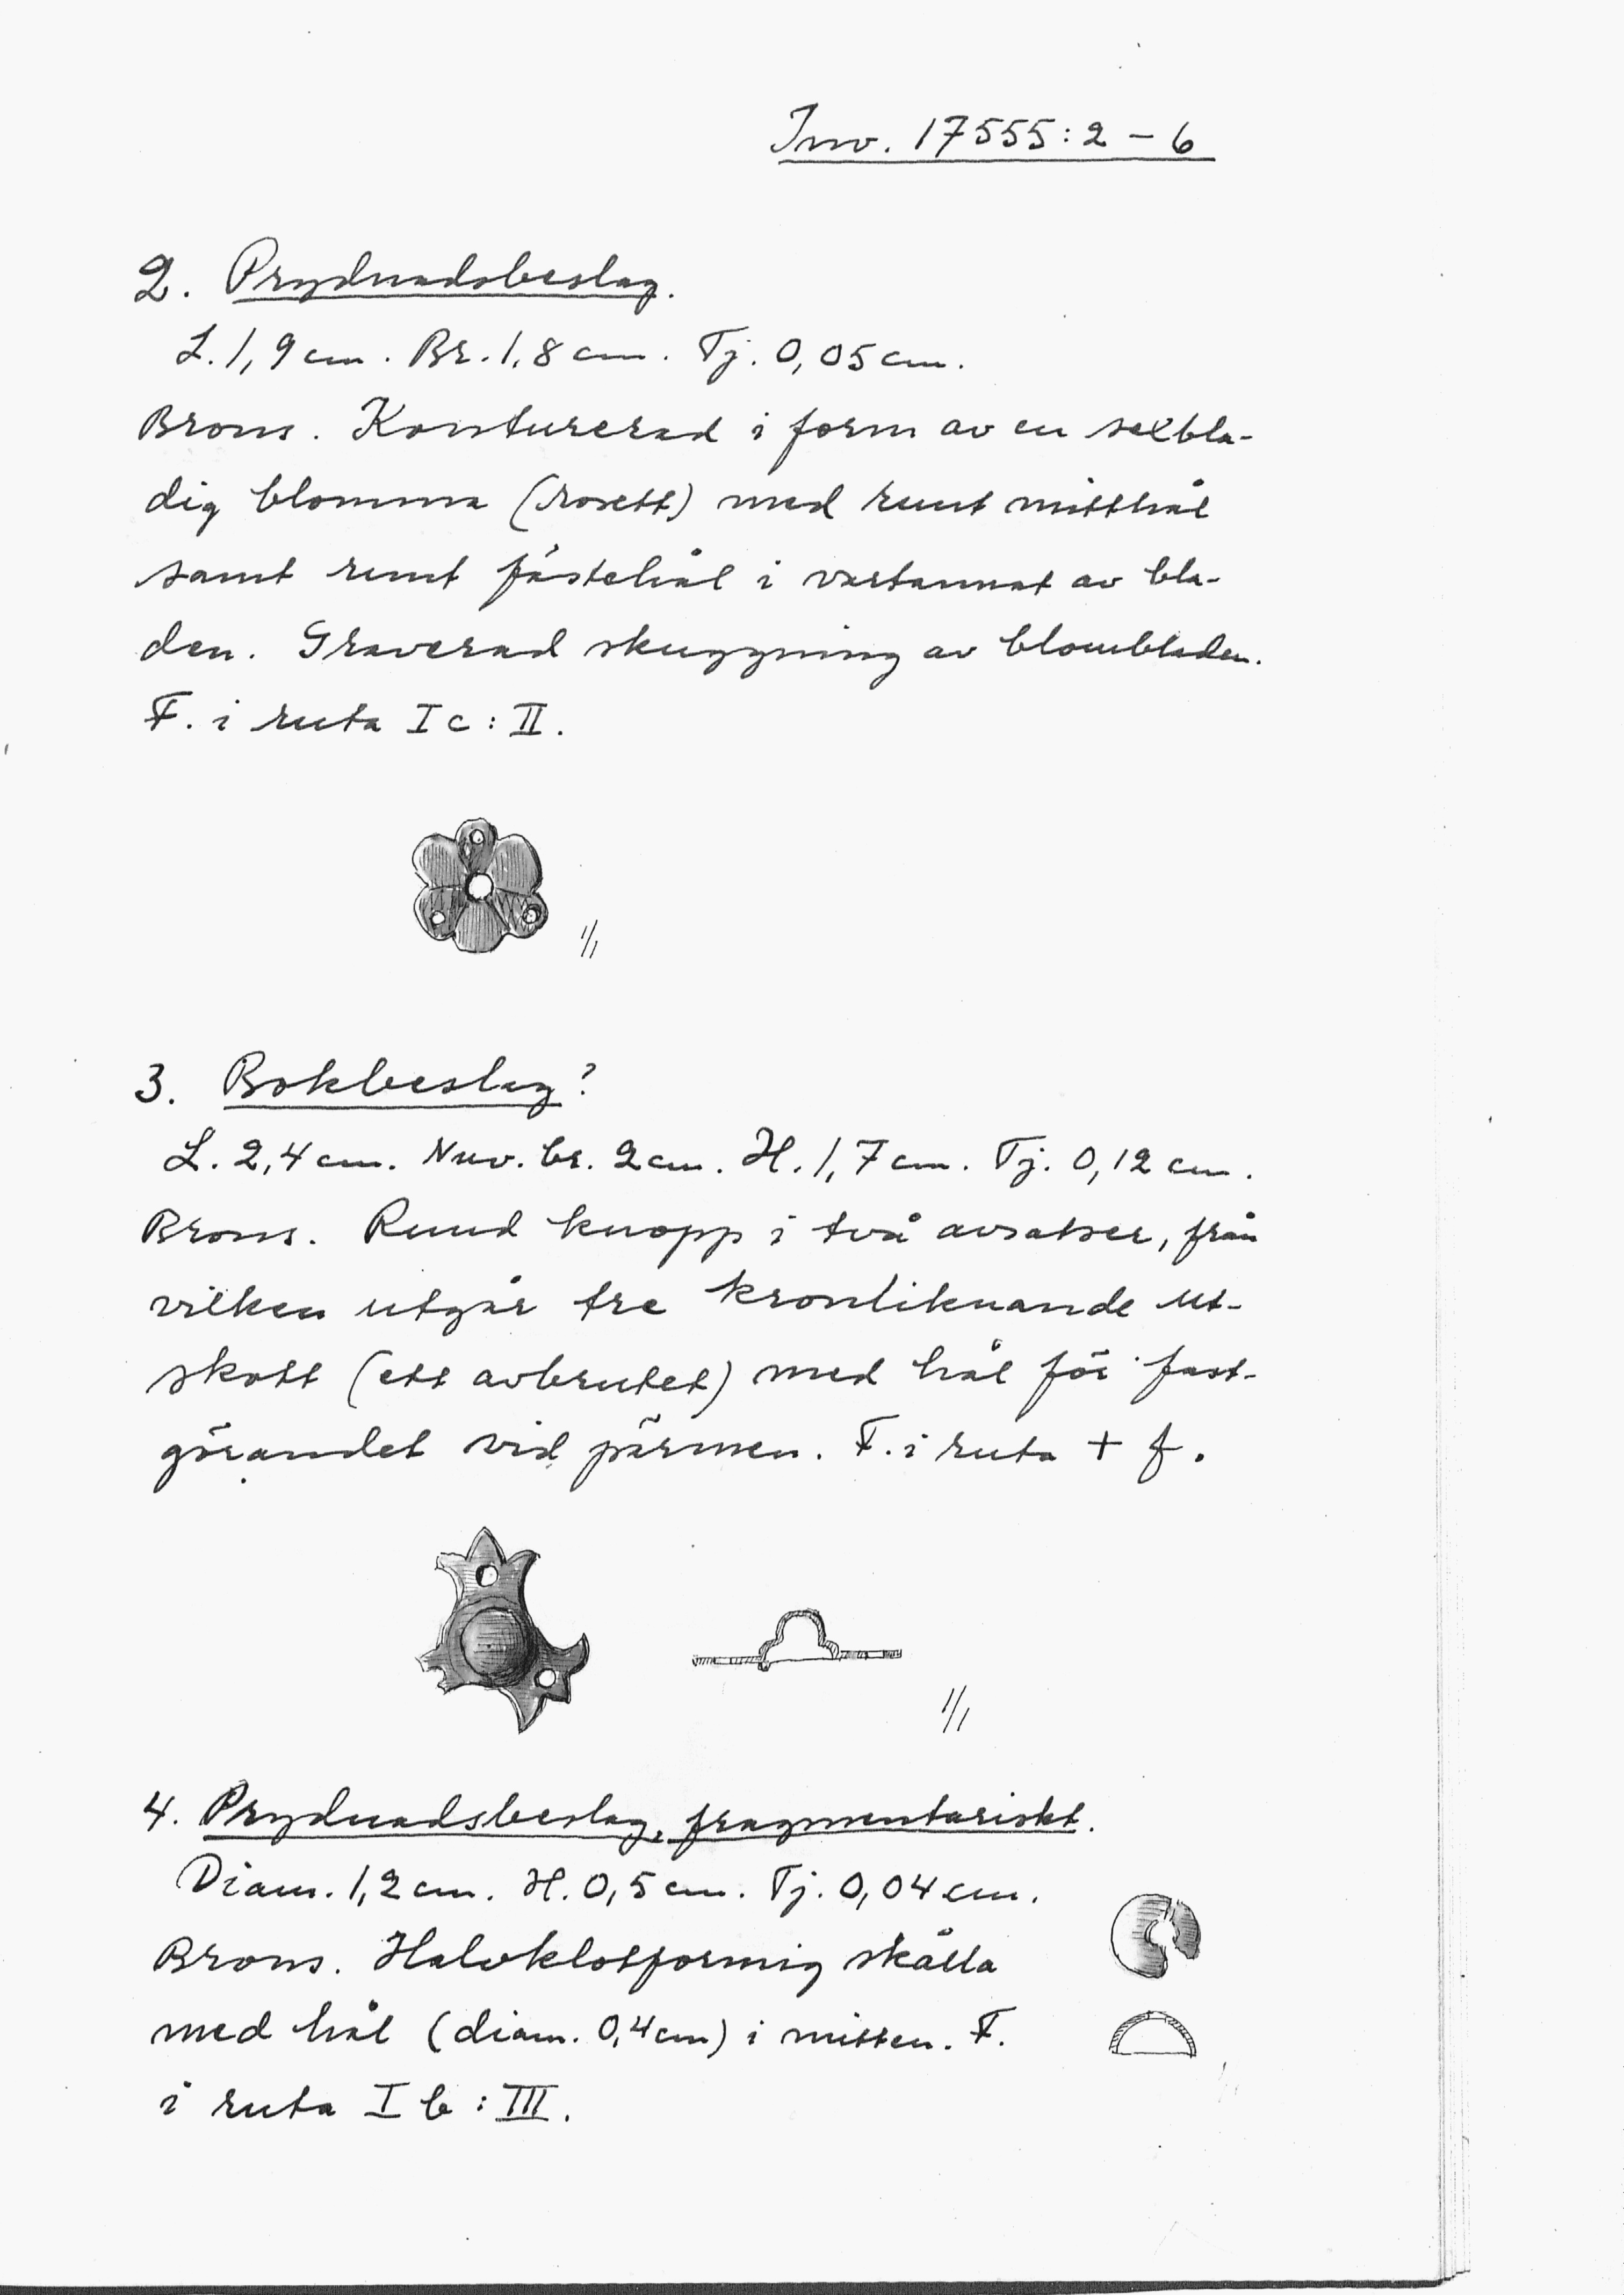 Inv. 17555:2 – 6
2. Prydnadsbeslag.
L. 1,9 cm. Br. 1,8 cm. Tj. 0,05 cm.
Brons. Konturerad i form av en sexbla-
dig blomma (rosett) med runt mitthål
samt runt fästehål i vartannat av bla-
den. Graverad skuggning av blombladen.
F. i ruta I c : II.
1/1
3. Bokbeslag?
L. 2,4 cm. Nuv. br. 2 cm. H. 1,7 cm. Tj. 0,12 cm.
Brons. Rund knopp i två avsatser, från
vilken utgår tre kronliknande ut-
skott (ett avbrutet) med hål för fast-
görandet vid pärmen. F. i ruta + f.
1/1
4. Prydnadsbeslag, fragmentariskt.
Diam. 1,2 cm. H. 0,5 cm. Tj. 0,04 cm.
Brons. Halvklotformig skålla
med hål (diam. 0,4 cm) i mitten. F.
i ruta I b : III.